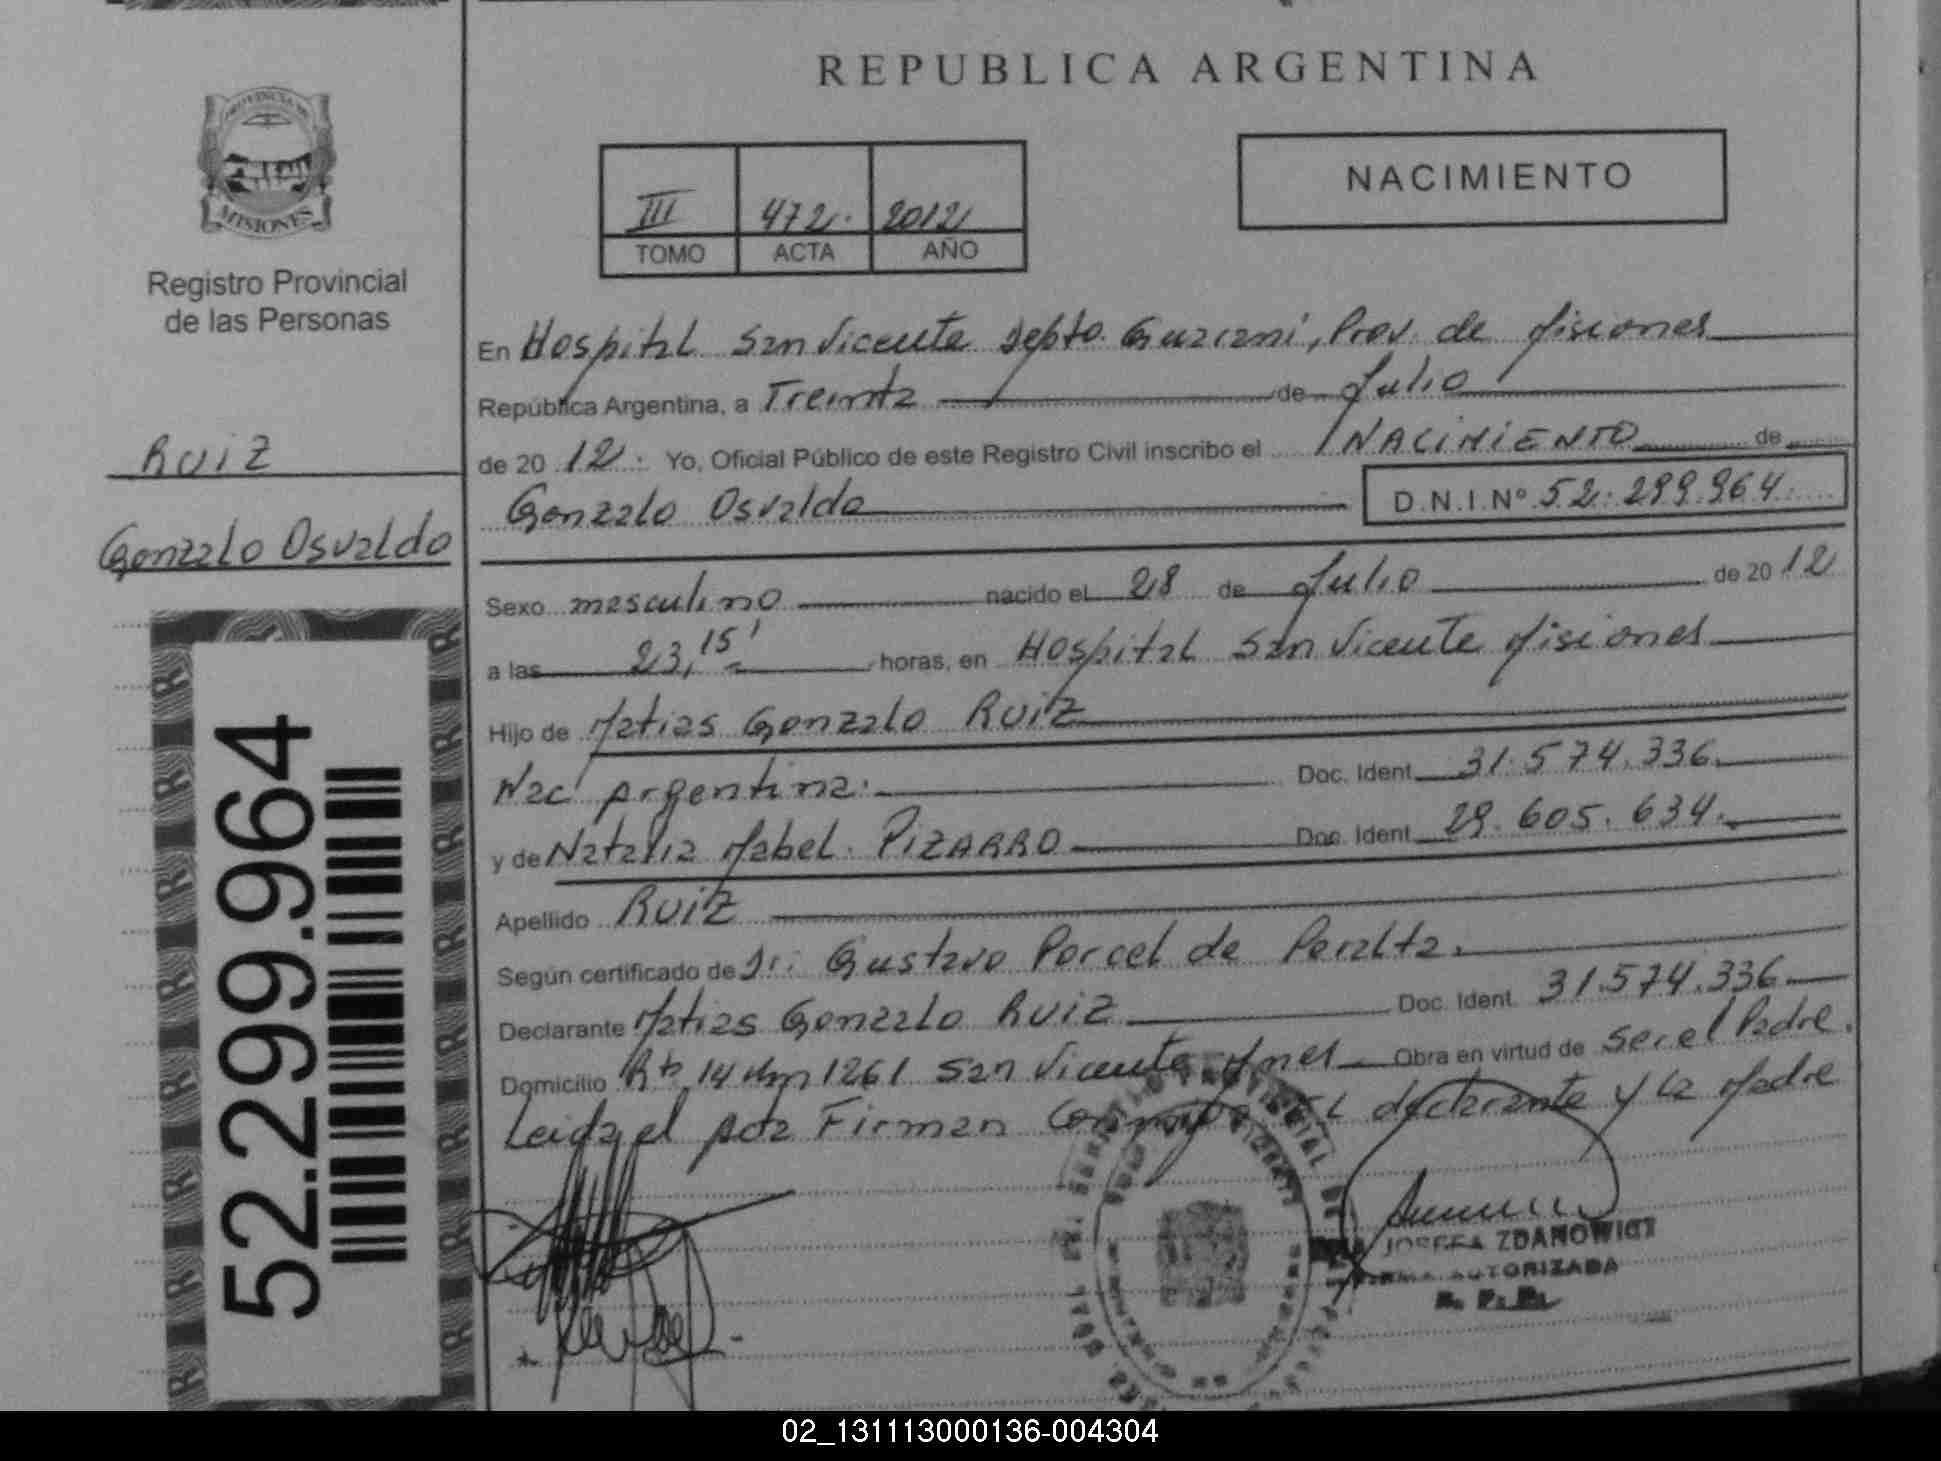 REPUBLICA ARGENTINA
PROVINCIA DE
MISIONES
Registro Provincial
de las Personas
RUIZ
Gonzalo Osvaldo
52.299.964
III 472. 2012
TOMO ACTA AÑO
NACIMIENTO
En Hospital San Vicente Depto. Guaraní, Prov. de Misiones
República Argentina, a Treinta de Julio
de 20 12. Yo, Oficial Público de este Registro Civil inscribo el NACIMIENTO de
Gonzalo Osvaldo D.N.I.Nº 52.299.964.
Sexo masculino nacido el 28 de Julio de 20 12
a las 23,15' horas, en Hospital San Vicente Misiones
Hijo de Matias Gonzalo RUIZ
Nac. Argentina. Doc. Ident. 31.574.336.
y de Natalia Mabel. PIZARRO Doc. Ident. 29.605.634.
Apellido RUIZ
Según certificado de Dr. Gustavo Porcel de Peralta.
Declarante Matias Gonzalo RUIZ Doc. Ident. 31.574.336.
Domicilio Rta 14 Km 1261 San Vicente Mnes Obra en virtud de ser el Padre.
Leida el acta Firman Conmigo el declarante y la Madre
JOSEFA ZDANOWICT
FIRMA AUTORIZADA
R. P. P.
02_131113000136-004304